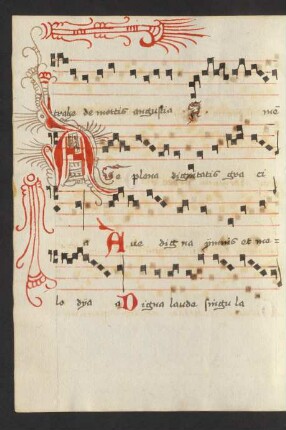 trahe de mortis angustia me
A e plena dignitatis gra ci
a Aue dig na ymnis et me
lo dya a Digna laude singu la